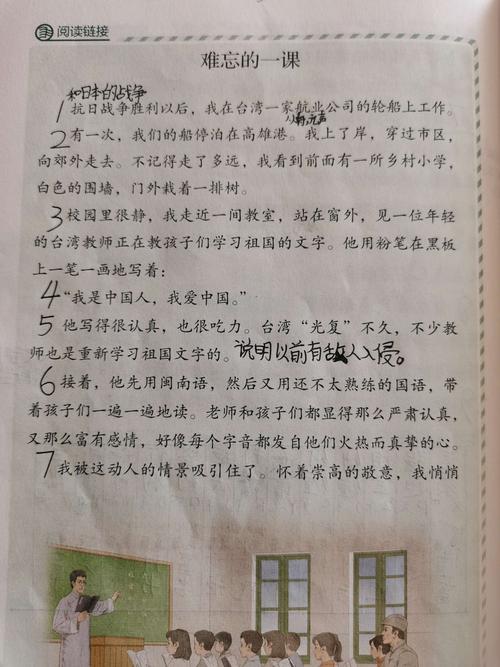 阅读链接
难忘的一课
和日本的战争
1抗日战争胜利以后，我在台湾一家航业公司的轮船上工作。
2有一次，我们的船停泊在高雄港。我上了岸，穿过市区，
向郊外走去。不记得走了多远，我看到前面有一所乡村小学，
白色的围墙，门外栽着一排树。
3校园里很静，我走近一间教室，站在窗外，见一位年轻
的台湾教师正在教孩子们学习祖国的文字。他用粉笔在黑板
上一笔一画地写着：
4“我是中国人，我爱中国。”
5他写得很认真，也很吃力。台湾“光复”不久，不少教
师也是重新学习祖国文字的。说明以前有敌人入侵。
6接着，他先用闽南语，然后又用还不太熟练的国语，带
着孩子们一遍一遍地读。老师和孩子们都显得那么严肃认真，
又那么富有感情，好像每个字音都发自他们火热而真挚的心。
7我被这动人的情景吸引住了。怀着崇高的敬意，我悄悄